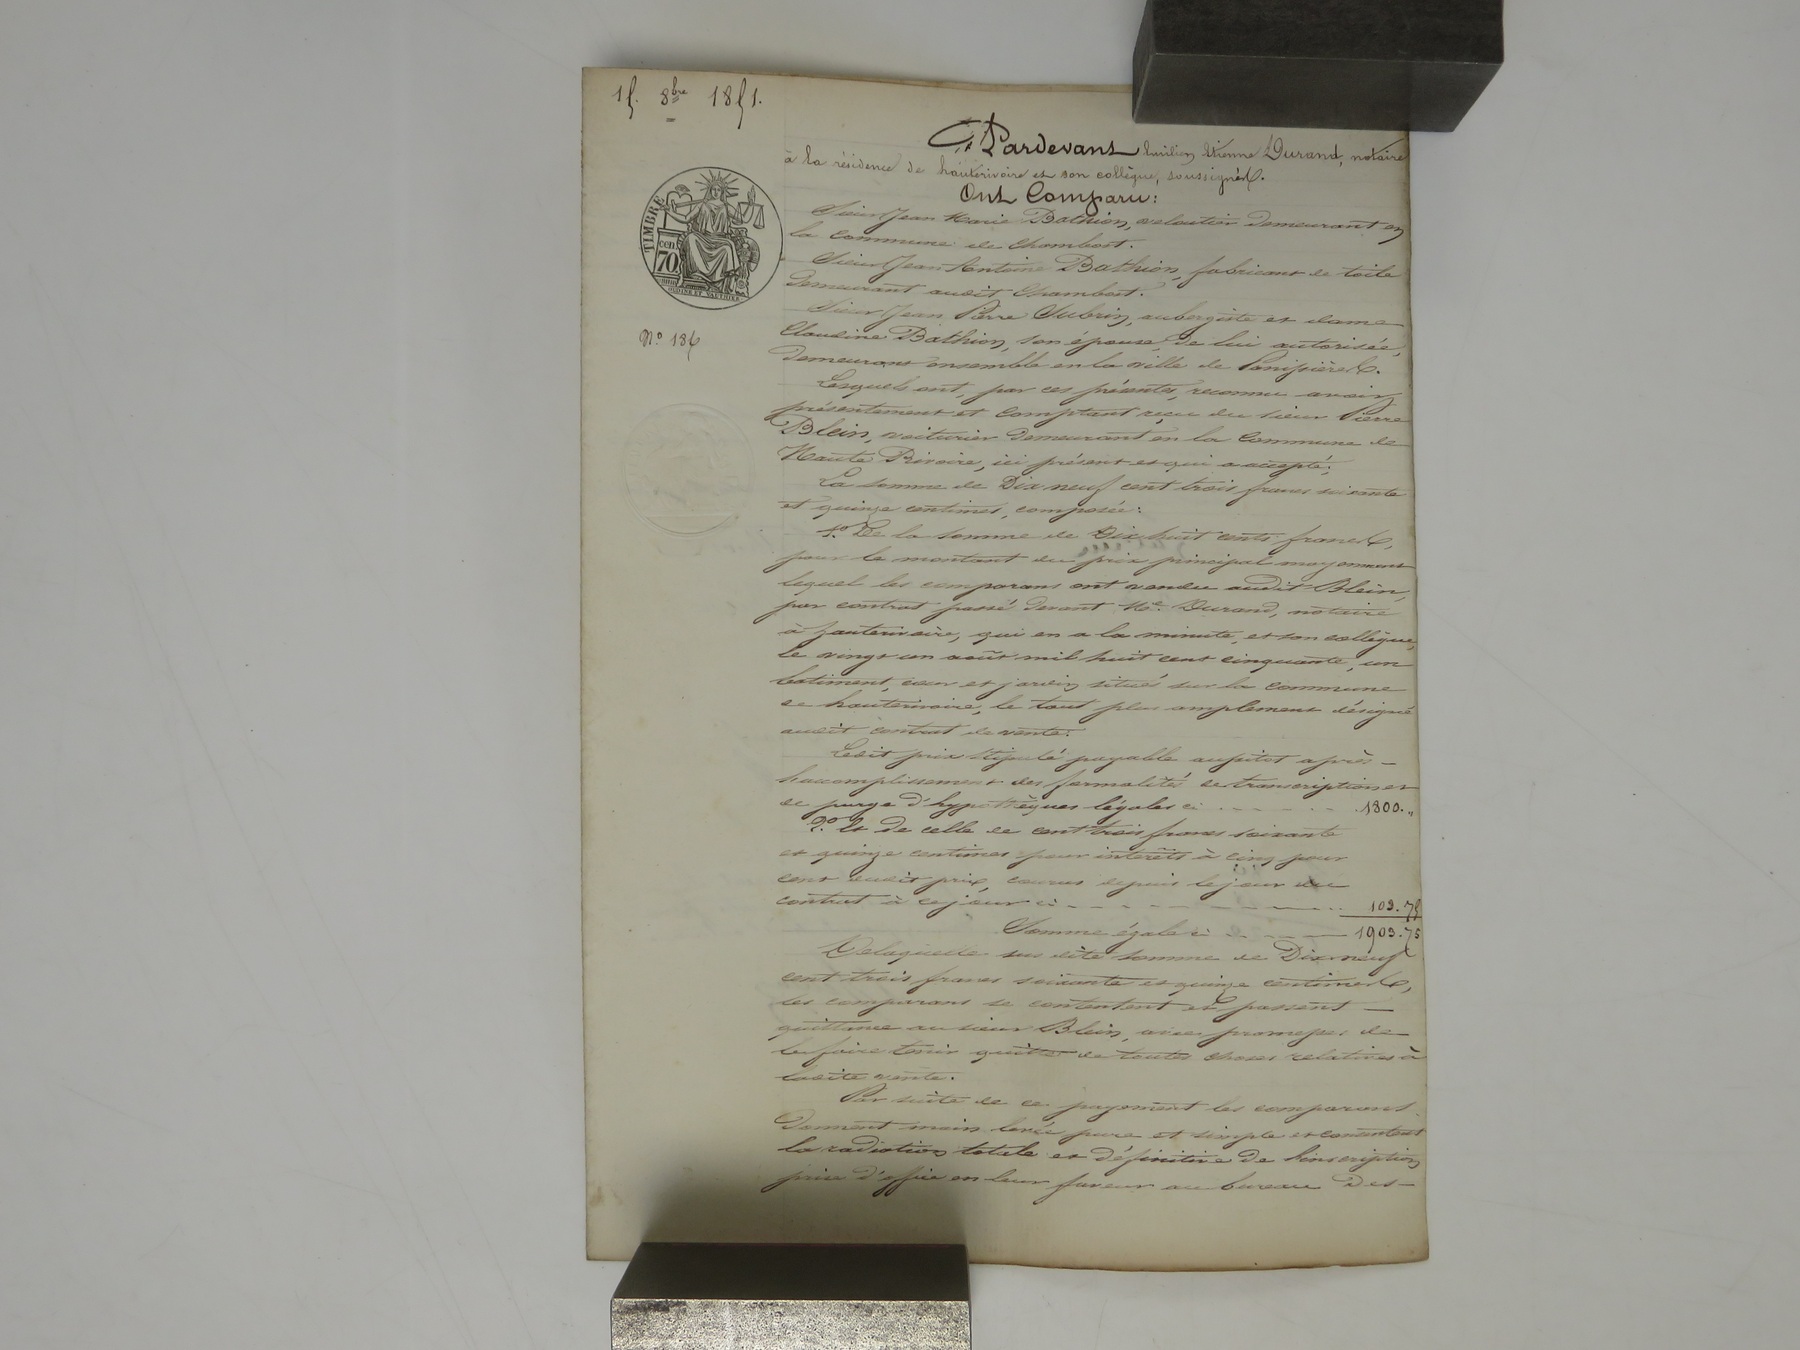 15. 8bre 1851.
Pardevant Etienne Durand, notaire
à la résidence de hauterivoire et son collègue, soussignés.
Ont Comparu:
TIMBRE
cen
70
Sieur Jean Marie Bathion, veloutier demeurant en
la commune de Chambost.
Sieur Jean Antoine Bathion, fabricant de toile
demeurant audit Chambost.
Sieur Jean Pierre Subrin, aubergiste et dame
N.o 186
Claudine Bathion, son épouse, de lui autorisée,
demeurant ensemble en la ville de Panissières.
Lesquels ont, par ces présentes, reconnu avoir
présentement et comptant reçu du sieur Pierre
Blein, voiturier demeurant en la Commune de
Haute Rivoire, ici présent et qui a accepté;
La somme de Dix neuf cent trois francs soixante
et quinze centimes, composée:
1.o De la somme de Dix huit cents francs,
pour le montant du prix principal moyennant
lequel les comparans ont vendu audit Blein,
par contrat passé devant Me. Durand, notaire
à hauterivoire, qui en a la minute, et son collègue,
le vingt un août mil huit cent cinquante, un
batiment, cour et jardin situés sur la commune
de hauterivoire, le tout plus amplement désigné
audit contrat de vente.
Ledit prix stipulé payable aussitot après —
l'accomplissement des formalités de transcription et
de purge d'hypothèques légales ci - - - - - 1800. "
2.o Et de celle de cent trois francs soixante
et quinze centimes pour intérêts à cinq pour
cent dudit prix, courus depuis le jour du
contrat à ce jour ci - - - - - 103.75
Somme égale ci - - - 1903.75
De laquelle sus dite somme de Dix neuf
cent trois francs soixante et quinze centimes,
les comparans se contentent et passent —
quittance au sieur Blein, avec promesses de
le faire tenir quitte de toutes choses relatives à
ladite vente.
Par suite de ce payement les comparans
donnent main levée pure et simple et consentent
la radiation totale et définitive de l'inscription
prise d'office en leur faveur au bureau des —